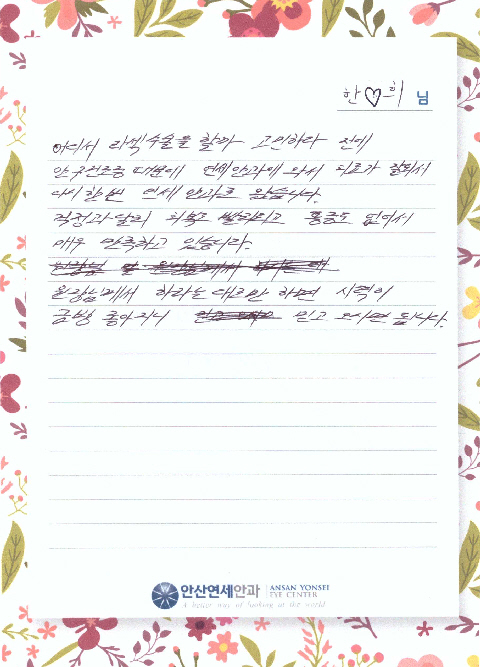 한♡희 님
어디서 라섹수술을 할까 고민하다 전에
안구건조증 때문에 연세안과에 와서 치료가 잘되서
다시 한번 연세안과로 왔습니다.
걱정과 달리 회복도 빨리되고 통증도 없어서
매우 만족하고 있습니다.
원장님께서 하라는대로만 하면 시력이
금방 좋아지니 믿고 오시면 됩니다.
안산연세안과 ANSAN YONSEI
EYE CENTER
A better way of looking at the world